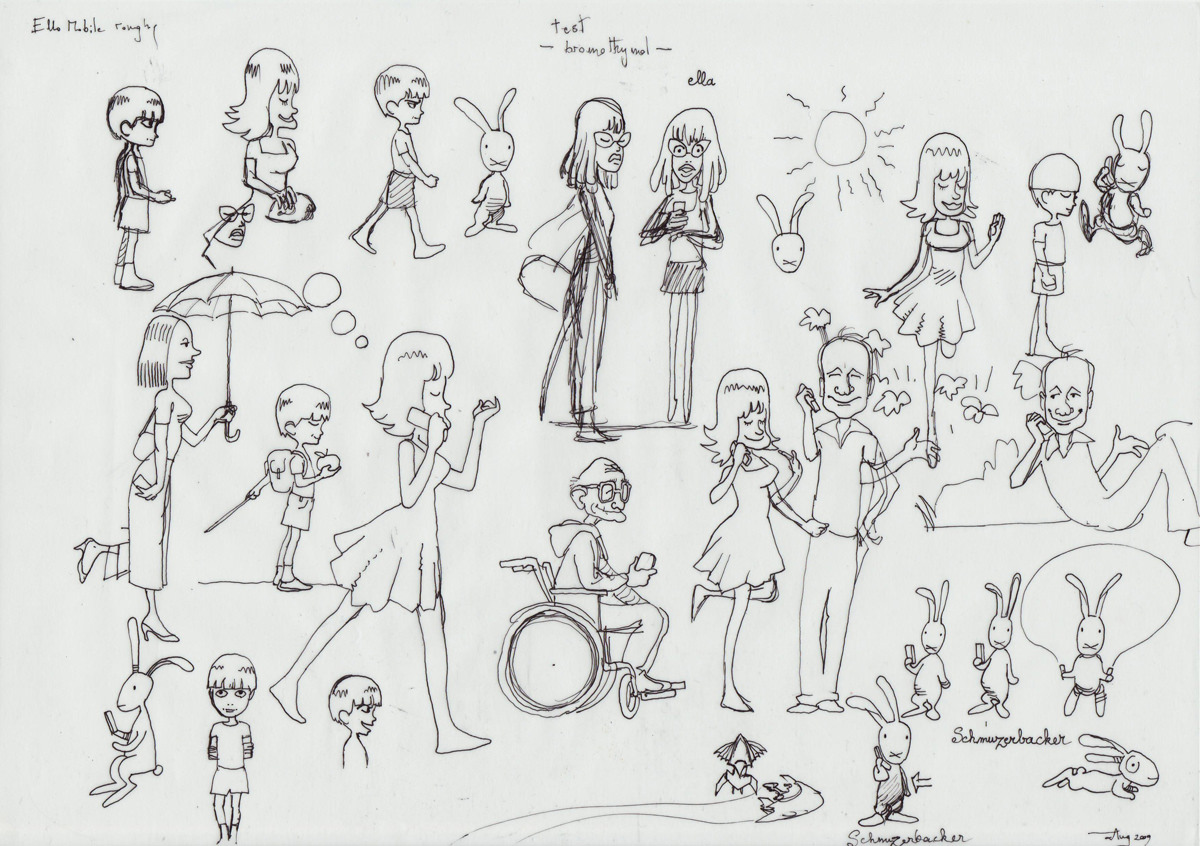 Ello Mobile roughs
test
— bromothymol —
ella
Schmuzerbacker
Schmuzerbacker
Aug 2009